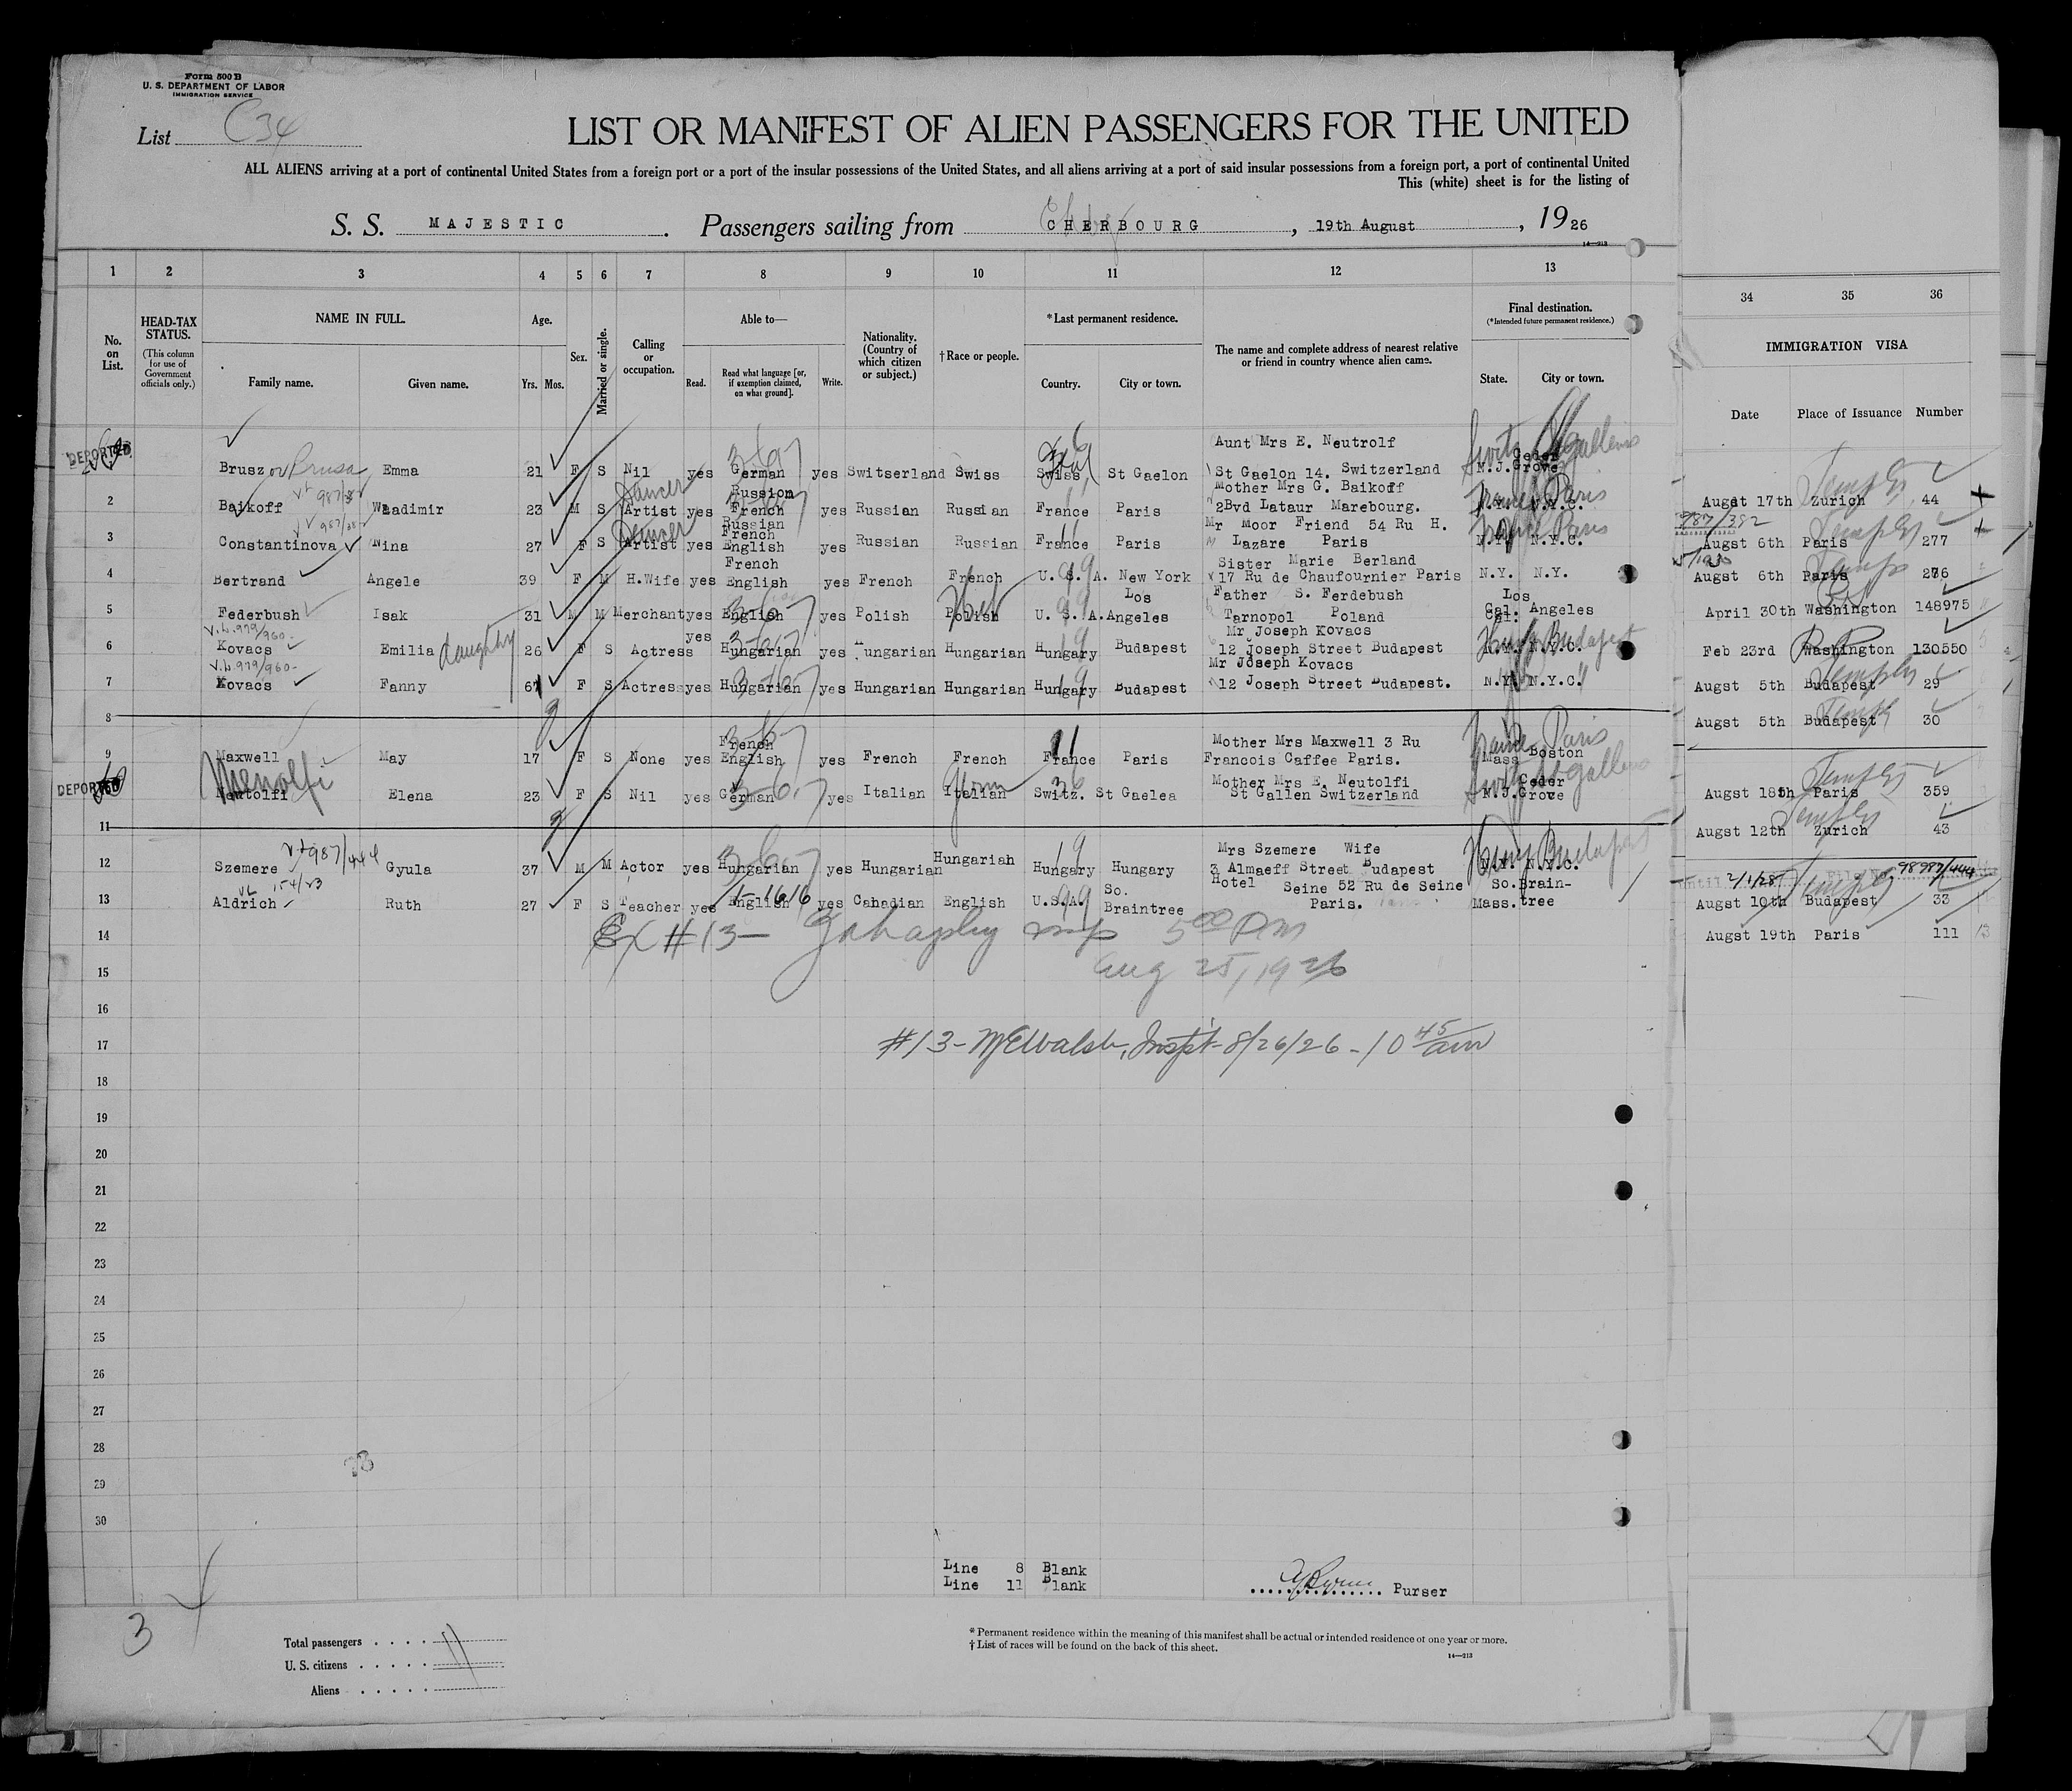 Form 500 B
U. S. DEPARTMENT OF LABOR
IMMIGRATION SERVICE
List C34
LIST OR MANIFEST OF ALIEN PASSENGERS FOR THE UNITED
ALL ALIENS arriving at a port of continental United States from a foreign port or a port of the insular possessions of the United States, and all aliens arriving at a port of said insular possessions from a foreign port, a port of continental United
This (white) sheet is for the listing of
S. S. MAJESTIC. Passengers sailing from CHERBOURG, 19th August, 1926
14—213
1 2 3 4 5 6 7 8 9 10 11 12 13 34 35 36
No. on List.
HEAD-TAX STATUS.
(This column for use of Government officials only.)
NAME IN FULL.
Family name. Given name.
Age.
Yrs. Mos.
Sex.
Married or single.
Calling or occupation.
Able to—
Read. Read what language [or, if exemption claimed, on what ground]. Write.
Nationality. (Country of which citizen or subject.)
†Race or people.
*Last permanent residence.
Country. City or town.
The name and complete address of nearest relative or friend in country whence alien came.
Final destination.
(*Intended future permanent residence.)
State. City or town.
IMMIGRATION VISA
Date Place of Issuance Number
DEPORTED Brusz or Brusa Emma 21 F S Nil yes German yes Switserland Swiss Swiss St Gaelon Aunt Mrs E. Neutrolf St Gaelon 14. Switzerland N.J. Ceder Grove Augst 17th Zurich 44
2 Baikoff Wladimir 23 M S Artist Dancer yes Russion French yes Russian Russian France Paris Mother Mrs G. Baikoff 2Bvd Lataur Marebourg. N.Y.C. 987/382 Augst 6th Paris 277
3 Constantinova Nina 27 F S Artist Dancer yes Russian French English yes Russian Russian France Paris Mr Moor Friend 54 Ru H. Lazare Paris N.Y. N.Y.C. Augst 6th Paris 276
4 Bertrand Angele 39 F M H.Wife yes French English yes French French U. S. A. New York Sister Marie Berland 17 Ru de Chaufournier Paris N.Y. N.Y. April 30th Washington 148975
5 Federbush Isak 31 M M Merchant yes English yes Polish Polish U. S. A. Los Angeles Father S. Ferdebush Tarnopol Poland Cal: Los Angeles Feb 23rd Washington 130550
V.L. 979/960-
6 Kovacs Emilia daughter 26 F S Actress yes Hungarian yes Hungarian Hungarian Hungary Budapest Mr Joseph Kovacs 12 Joseph Street Budapest N.Y. N.Y.C. Augst 5th Budapest 29
V.L. 979/960-
7 Kovacs Fanny F S Actress yes Hungarian yes Hungarian Hungarian Hungary Budapest Mr Joseph Kovacs 12 Joseph Street Budapest. N.Y. N.Y.C. Augst 5th Budapest 30
8
9 Maxwell May 17 F S None yes French English yes French French France Paris Mother Mrs Maxwell 3 Ru Francois Caffee Paris. Mass Boston August 18th Paris 359
DEPORTED Neutolfi Menolfi Elena 23 F S Nil yes German yes Italian Italian Switz. St Gaelea Mother Mrs E. Neutolfi St Gallen Switzerland N.J. Ceder Grove August 12th Zurich 43
11
12 Szemere 987/444 Gyula 37 M M Actor yes Hungarian yes Hungarian Hungarian Hungary Hungary Mrs Szemere Wife 3 Almaeff Street Budapest N.Y. N.Y.C. August 10th Budapest 33
13 Aldrich Ruth 27 F S Teacher yes English yes Cahadian English U.S.A. So. Braintree Hotel Seine 52 Ru de Seine Paris. Mass. So. Braintree Augst 19th Paris 111
14 Ex #13— 5 00 PM
15 Aug 25, 1926
16
17 #13-McWalsh, Inspt- 8/26/26 - 10 45/am
18
19
20
21
22
23
24
25
26
27
28
29
30
Line 8 Blank
Line 11 Blank
Purser
3
Total passengers
U. S. citizens 11
Aliens
* Permanent residence within the meaning of this manifest shall be actual or intended residence of one year or more.
† List of races will be found on the back of this sheet.
14—213